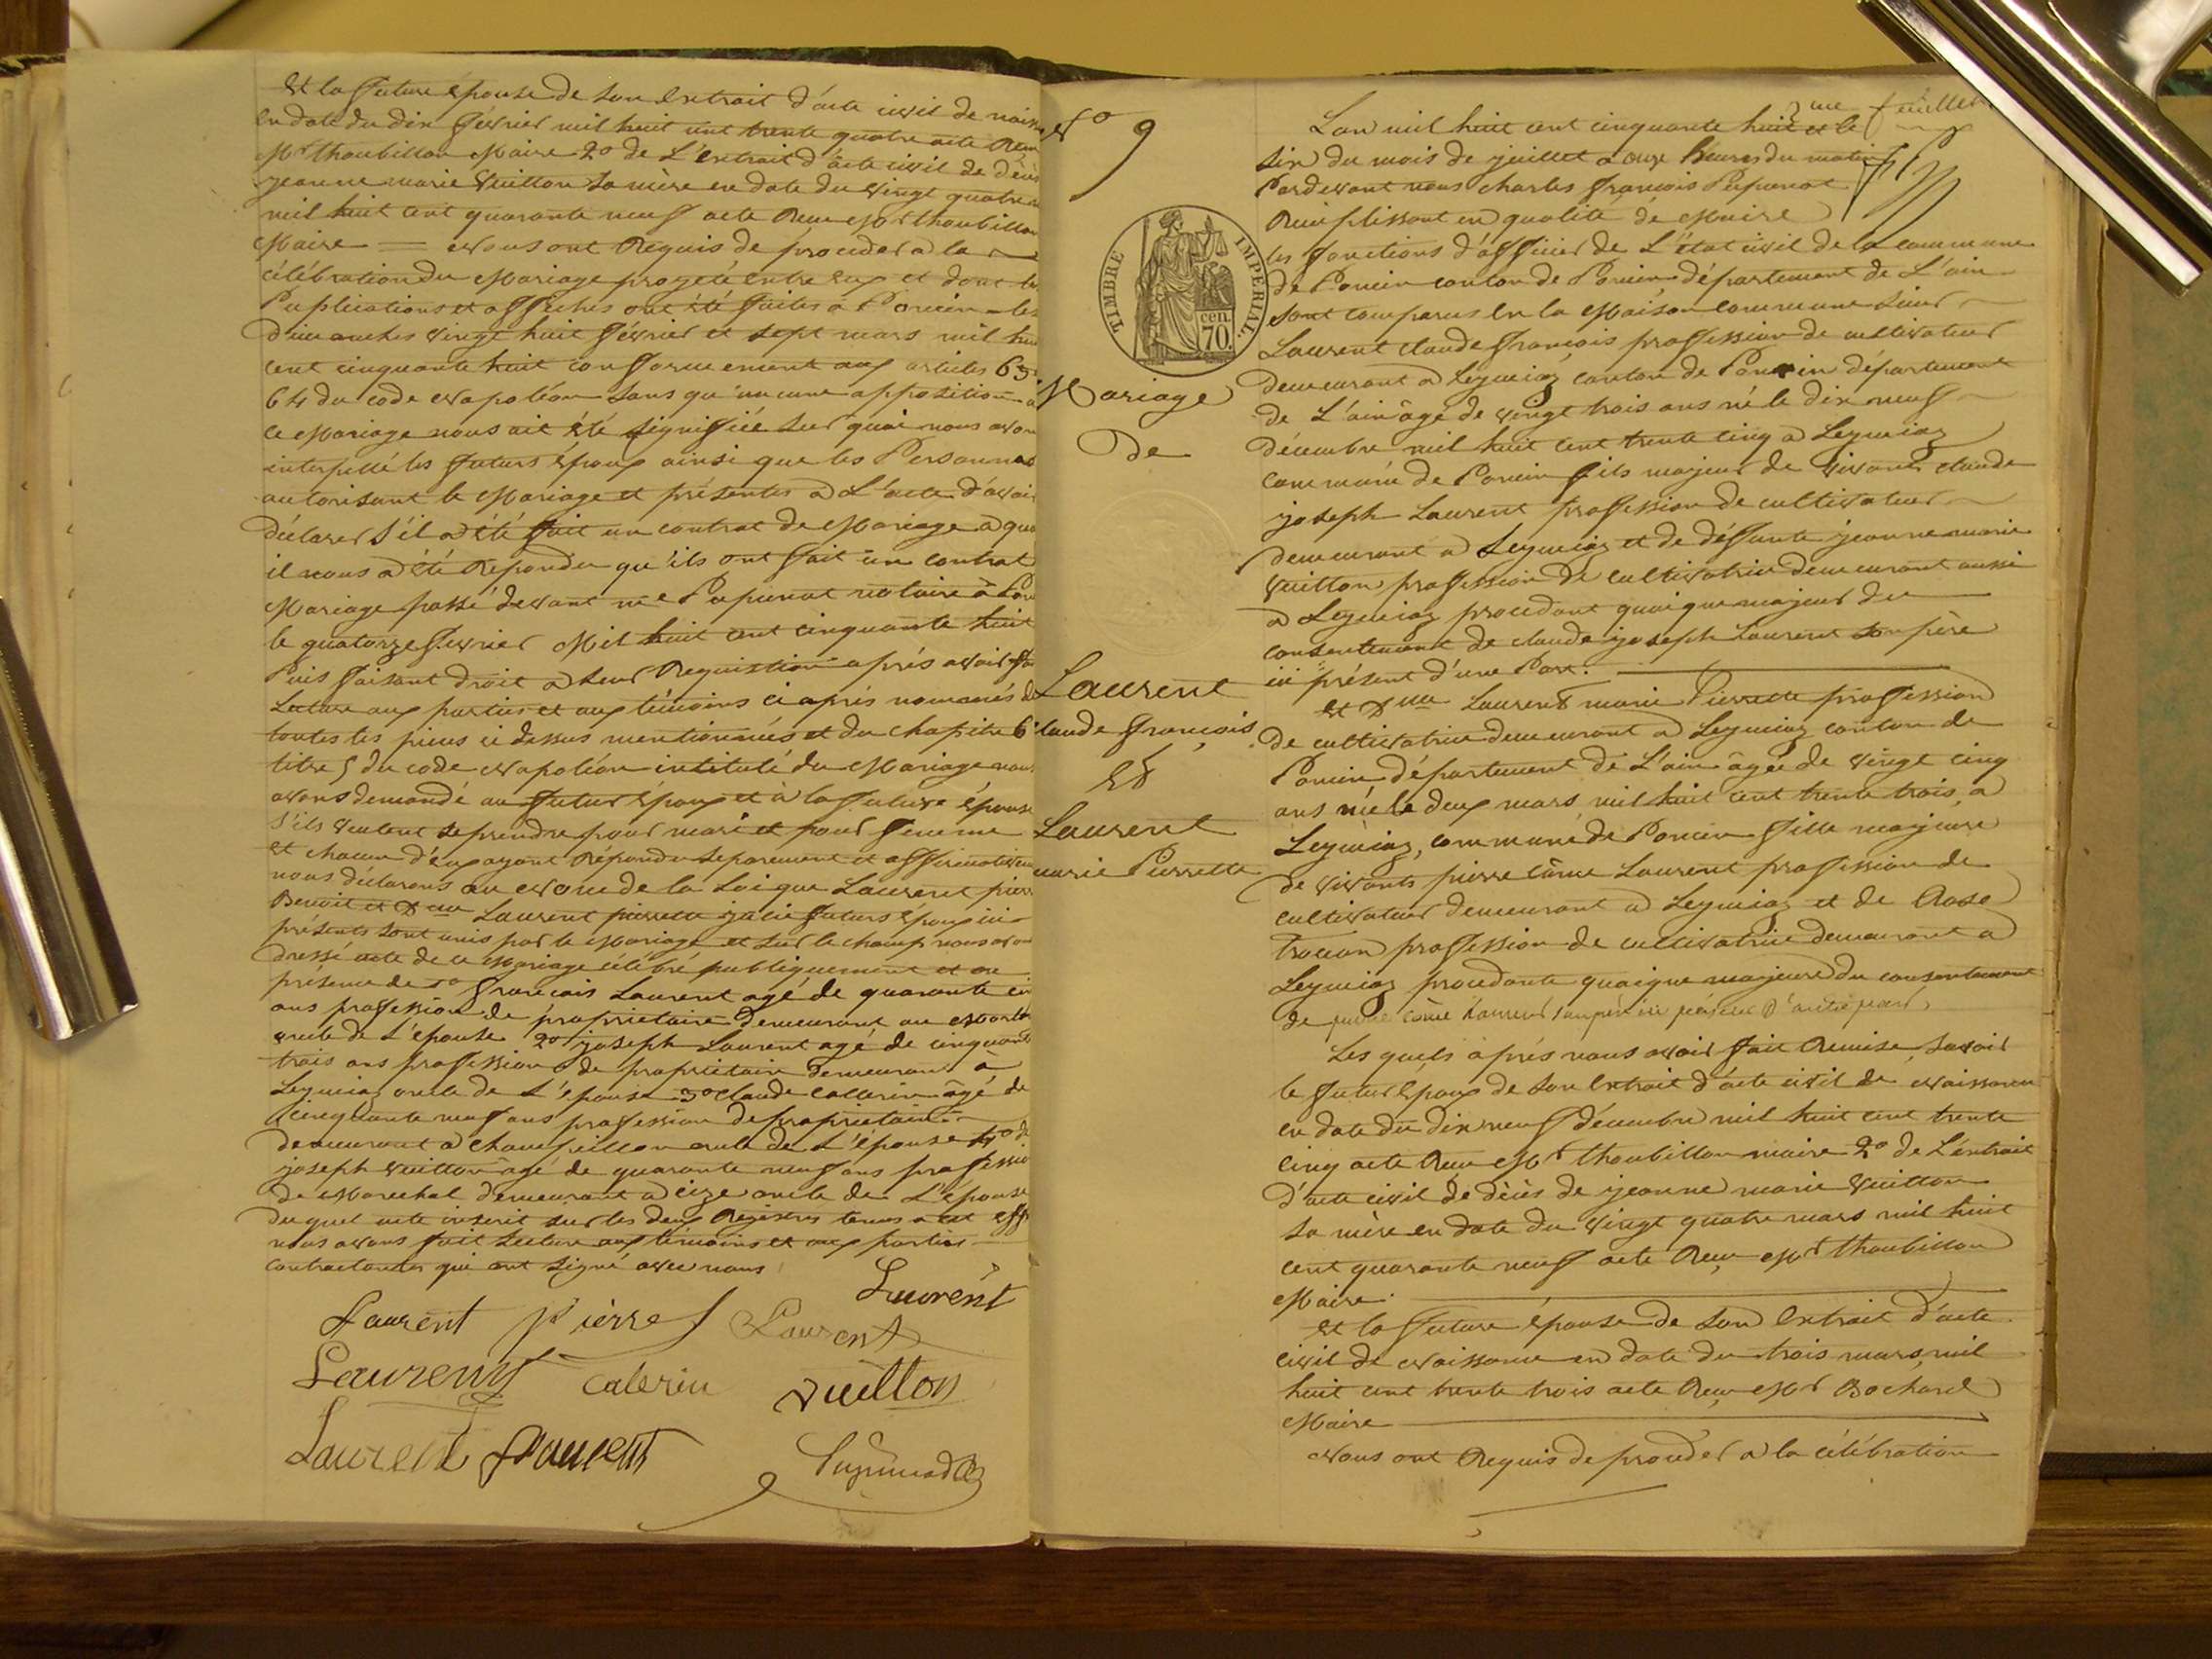 Et la future épouse de son Extrait d'acte civil de naiss
en date du dix février mil huit cent trente quatre acte Reçu
Mr thoubillon Maire 2o de L'extrait d'acte civil de décès
jeanne marie Vuitton sa mère en date du vingt quatre m
mil huit cent quarante neuf acte Reçu Mr thoubillon
Maire — Nous ont Requis de proceder a la
célébration du Mariage projeté Entre Eux et dont les
Publications et affiches ont été faites à Poncin les
Dimanches vingt huit février et sept mars mil hui
cent cinquante huit conformement aux articles 63
64 du code Napoléon sans qu'aucune opposition a
ce Mariage nous ait été signifiée sur quoi nous avon
interpellé les futurs époux ainsi que les Personnes
autorisant le Mariage et présentes a L'acte d'avoir
déclarer s'il a été fait un contrat de Mariage a quoi
il nous a été Repondu qu'ils ont fait un contrat
Mariage passé devant me Pupunat notaire à Pon
le quatorze fevrier Mil huit cent cinquante huit
Puis faisant droit a Leur Requistion après avoir fai
Lecture aux parties et aux témoins ci après nommés de
toutes les pieces ci dessus mentionnées et du chapitre 6
titre 5 du code Napoléon intitulé du Mariage nous
avons demandé au futur époux et à la future épouse
s'ils veulent se prendre pour mari et pour femme
et chacun d'eux ayant Répondu separement et affirmativem
nous déclarons au Nom de la Loi que Laurent pierr
Benoit et Dlle Laurent pierrette julie futurs époux ici
présents sont unis par le Mariage et sur le champ nous avon
Dressé acte de ce Mariage célébré publiquement et en
présence de 1o francois Laurent agé de quarante ci
ans profession de propriétaire Demeurant au
oncle de L'épouse 2o joseph Laurent agé de cinquant
trois ans profession de propriétaire Demeurant à
Leymiaz oncle de L'épouse 3o claude Callerin âgé de
cinquante neuf ans profession de propriétaire
demeurant a Champeillon oncle de L'épouse 4o de
joseph Vuitton âgé de quarante neuf ans professio
de Marechal demeurant a cize oncle de L'épouse
Du quel acte inscrit sur les deux Registres tenus a cet eff
nous avons fait Lecture aux témoins et aux parties
contractantes qui ont signé avec nous
Laurent
Laurent pierre Laurent
Laurent Calerin Vuitton
Laurent Laurent
No 9
3me feuillet
TIMBRE IMPERIAL.
cen. 70.
Mariage
De
Laurent
Claude françois
Et
Laurent
marie Pierrette
Lan mil huit cent cinquante huit et le
six du mois de juillet a onze heures du matin
Pardevant nous Charles françois Pupunat
Remplissant en qualité de Maire
les fonctions d'officier de L'état civil de la commune
de Poncin canton de Poncin, département de L'ain
sont comparus En la Maison commune Sieur
Laurent claude françois profession de cultivateur
demeurant a Leymiaz canton de Poncin département
de L'ain âgé de vingt trois ans né le dix neuf
décembre mil huit cent trente cinq a Leymiaz
commune de Poncin fils majeur de vivant claude
joseph Laurent profession de cultivateur
demeurant a Leymiaz et de défunte jeanne marie
Vuitton profession de cultivatrice demeurant aussi
a Leymiaz procedant quoique majeur du
consentement de claude joseph Laurent son père
ici présent d'une Part.
et Dlle Laurent marie Pierrette profession
de cultivatrice demeurant a Leymiaz canton de
Poncin département de L'ain âgée de vingt cinq
ans née le deux mars mil huit cent trente trois, a
Leymiaz, commune de Poncin fille majeure
de vivants pierre Côme Laurent profession de
cultivateur demeurant a Leymiaz et de Rose
trocon profession de cultivatrice demeurant a
Leymiaz procedante quoique majeure du consentement
de pierre Côme Laurent son père ici présent d'autre part,
Les quels après nous avoir fait Remise, savoir
le futur Epoux de son Extrait d'acte civil de Naissance
en date du dix neuf décembre mil huit cent trente
cinq acte Reçu Mr thoubillon maire 2o de L'extrait
d'acte civil de décès de jeanne marie Vuitton
sa mère en date du vingt quatre mars mil huit
cent quarante neuf acte Reçu Mr thoubillon
Maire.
Et la future épouse de son Extrait d'acte
civil de Naissance en date du trois mars, mil
huit cent trente trois acte Reçu Mr Bochard
Maire
Nous ont Requis de proceder a la célébration